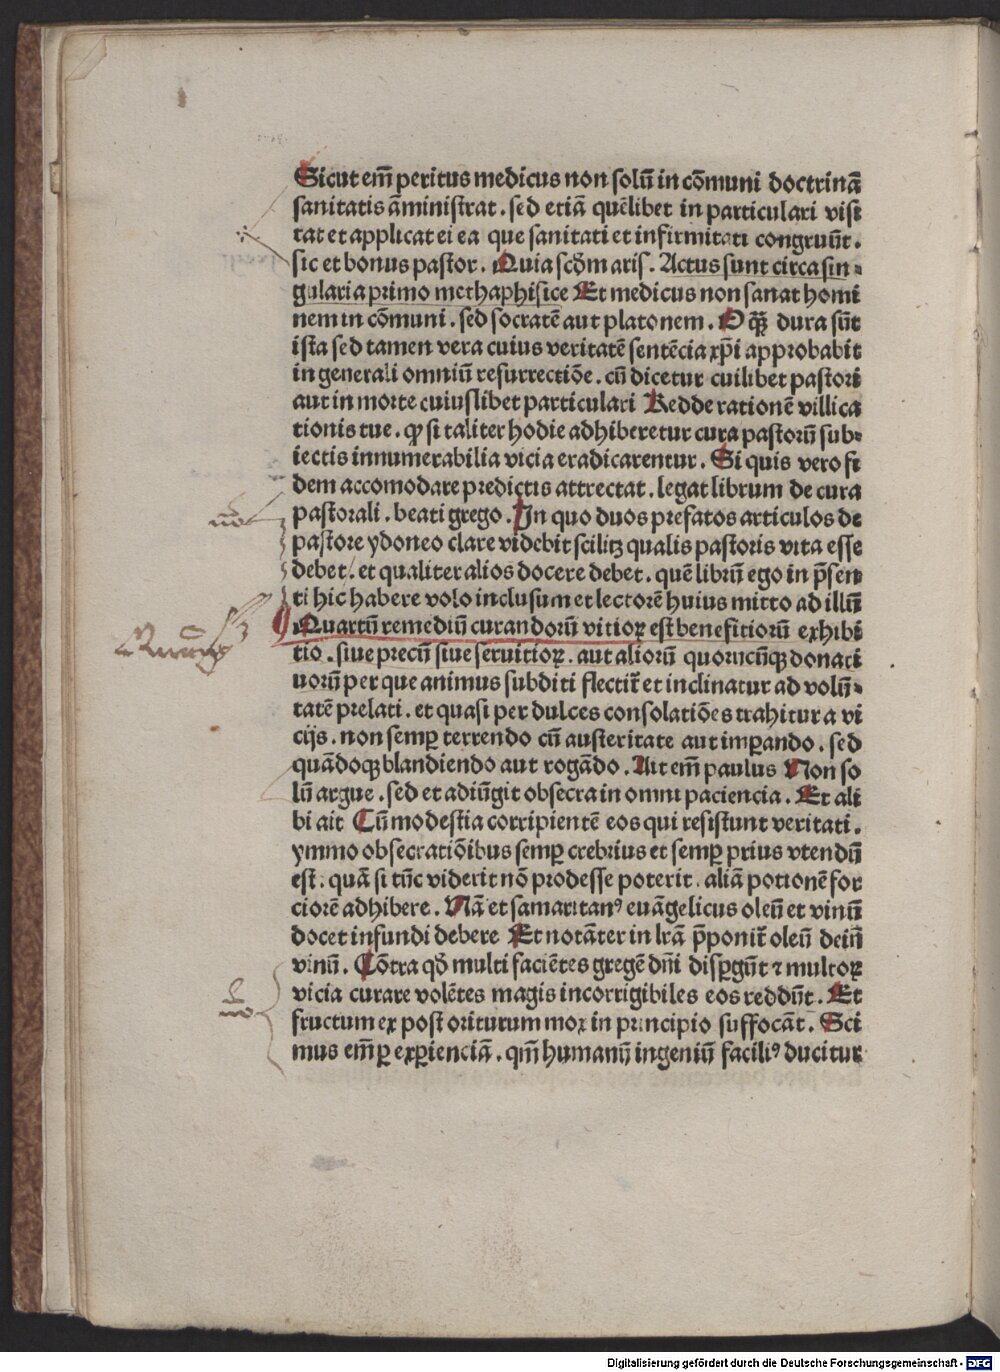 Sicut em̄ peritus medicus non solū in cōmuni doctrinā
sanitatis āministrat . sed etiā quēlibet in particulari visi
tat et applicat ei ea que sanitati et infirmitati congruūt .
sic et bonus pastor . Quia scd̄m aris . Actus sunt circa sin⸗
gularia primo methaphisice Et medicus non sanat homi
nem in cōmuni . sed socratē aut platonem . O q̄ꝫ dura sūt
ista sed tamen vera cuius veritatē sentēcia xp̄i approbabit
in generali omniū resurrectiōe . cū dicetur cuilibet pastori
aut in morte cuiuslibet particulari Redde rationē villica
tionis tue . ꝙ si taliter hodie adhiberetur cura pastorū sub⸗
iectis innumerabilia vicia eradicarentur . Si quis vero fi
dem accomodare predictis attrectat . legat librum de cura
pastorali . beati grego . In quo duos prefatos articulos de
pastore ydoneo clare videbit scilitꝫ qualis pastoris vita esse
debet . et qualiter alios docere debet . quē librū ego in p̄sen
ti hic habere volo inclusum et lectorē huius mitto ad illū
Quartū remediū curandorū vitioꝝ est benefitiorū exhibi
tio . siue precū siue seruitioꝝ . aut aliorū quorūcūqꝫ donati
uorū per que animus subditi flectit̄ et inclinatur ad volū⸗
tatē prelati . et quasi per dulces consolatiōes trahitur a vi
cijs . non semꝑ terrendo cū austeritate aut imꝑando . sed
quādoqꝫ blandiendo aut rogādo . Ait em̄ paulus Non so
lū argue . sed et adiūgit obsecra in omni paciencia . Et ali
bi ait Cū modestia corripientē eos qui resistunt veritati .
ymmo obsecratiōibus semꝑ crebrius et semꝑ prius vtendū
est . quā si tūc viderit nō prodesse poterit . aliā potionē for
ciorē adhibere . Nā et samaritanꝰ euāgelicus oleū et vinū
docet infundi debere Et notāter in lr̄a p̄ponit̄ oleū dein̄
vinū . Cōtra qd̄ multi faciētes gregē dn̄i disꝑgūt ⁊ multoꝝ
vicia curare volētes magis incorrigibiles eos reddūt . Et
fructum ex post oriturum mox in principio suffocāt . Sci
mus em̄ ꝑ exꝑienciā . qm̄ humanū ingeniū faciliꝰ ducitur
Digitalisierung gefördert durch die Deutsche Forschungsgemeinschaft - DFG